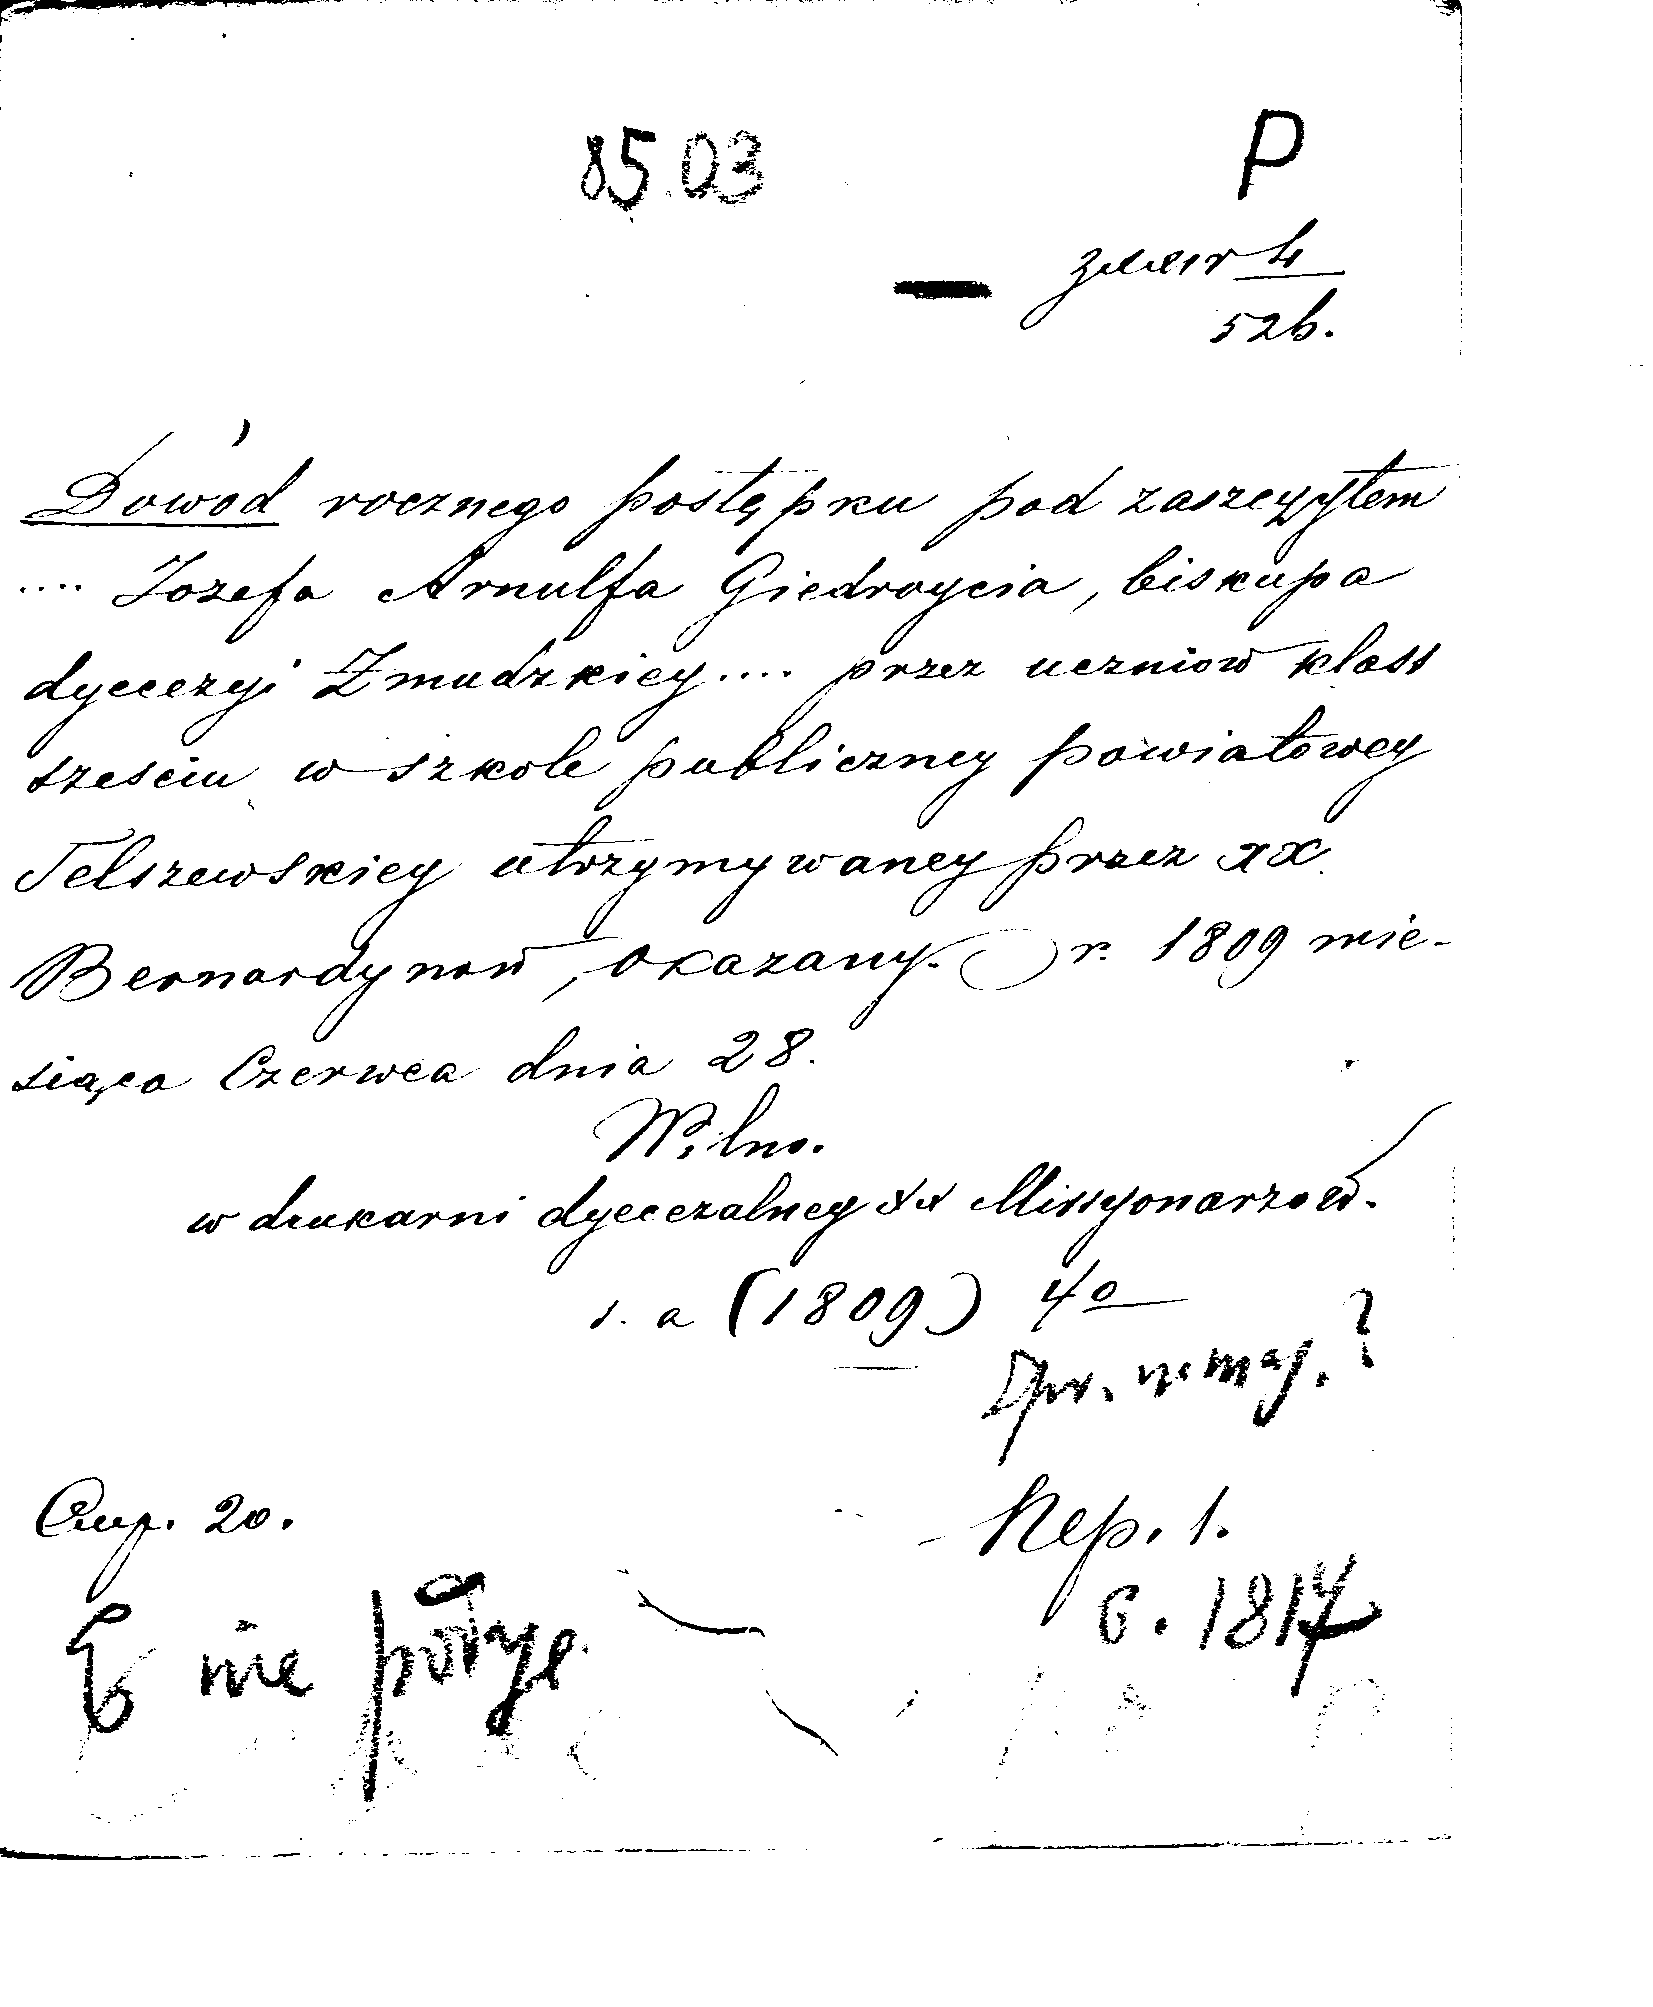 85.03
P
4
52b.
Dowód rocznego postępku pod zaszczytem
.... Jozefa Arnulfa Giedroycia, biskupa
dyecezyi Zmudzkiey.... przez uczniow klass
sześciu w szkole publiczney powiatowey
Telszewskiey utrzymywaney przez xx.
Bernardynow, okazany. r. 1809 mie-
siąca Czerwca dnia 28.
Wilno.
w drukarni dyecezalney xx Missyonarzow.
s. a (1809) 4o
?
Cup. 20.
Kep. 1.
G. 1817
nie